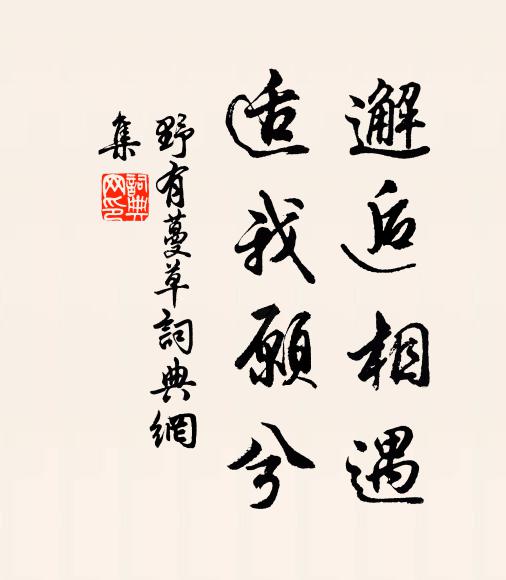 邂逅相遇
适我願兮
野有蔓草詞典網
集
詞典
网印